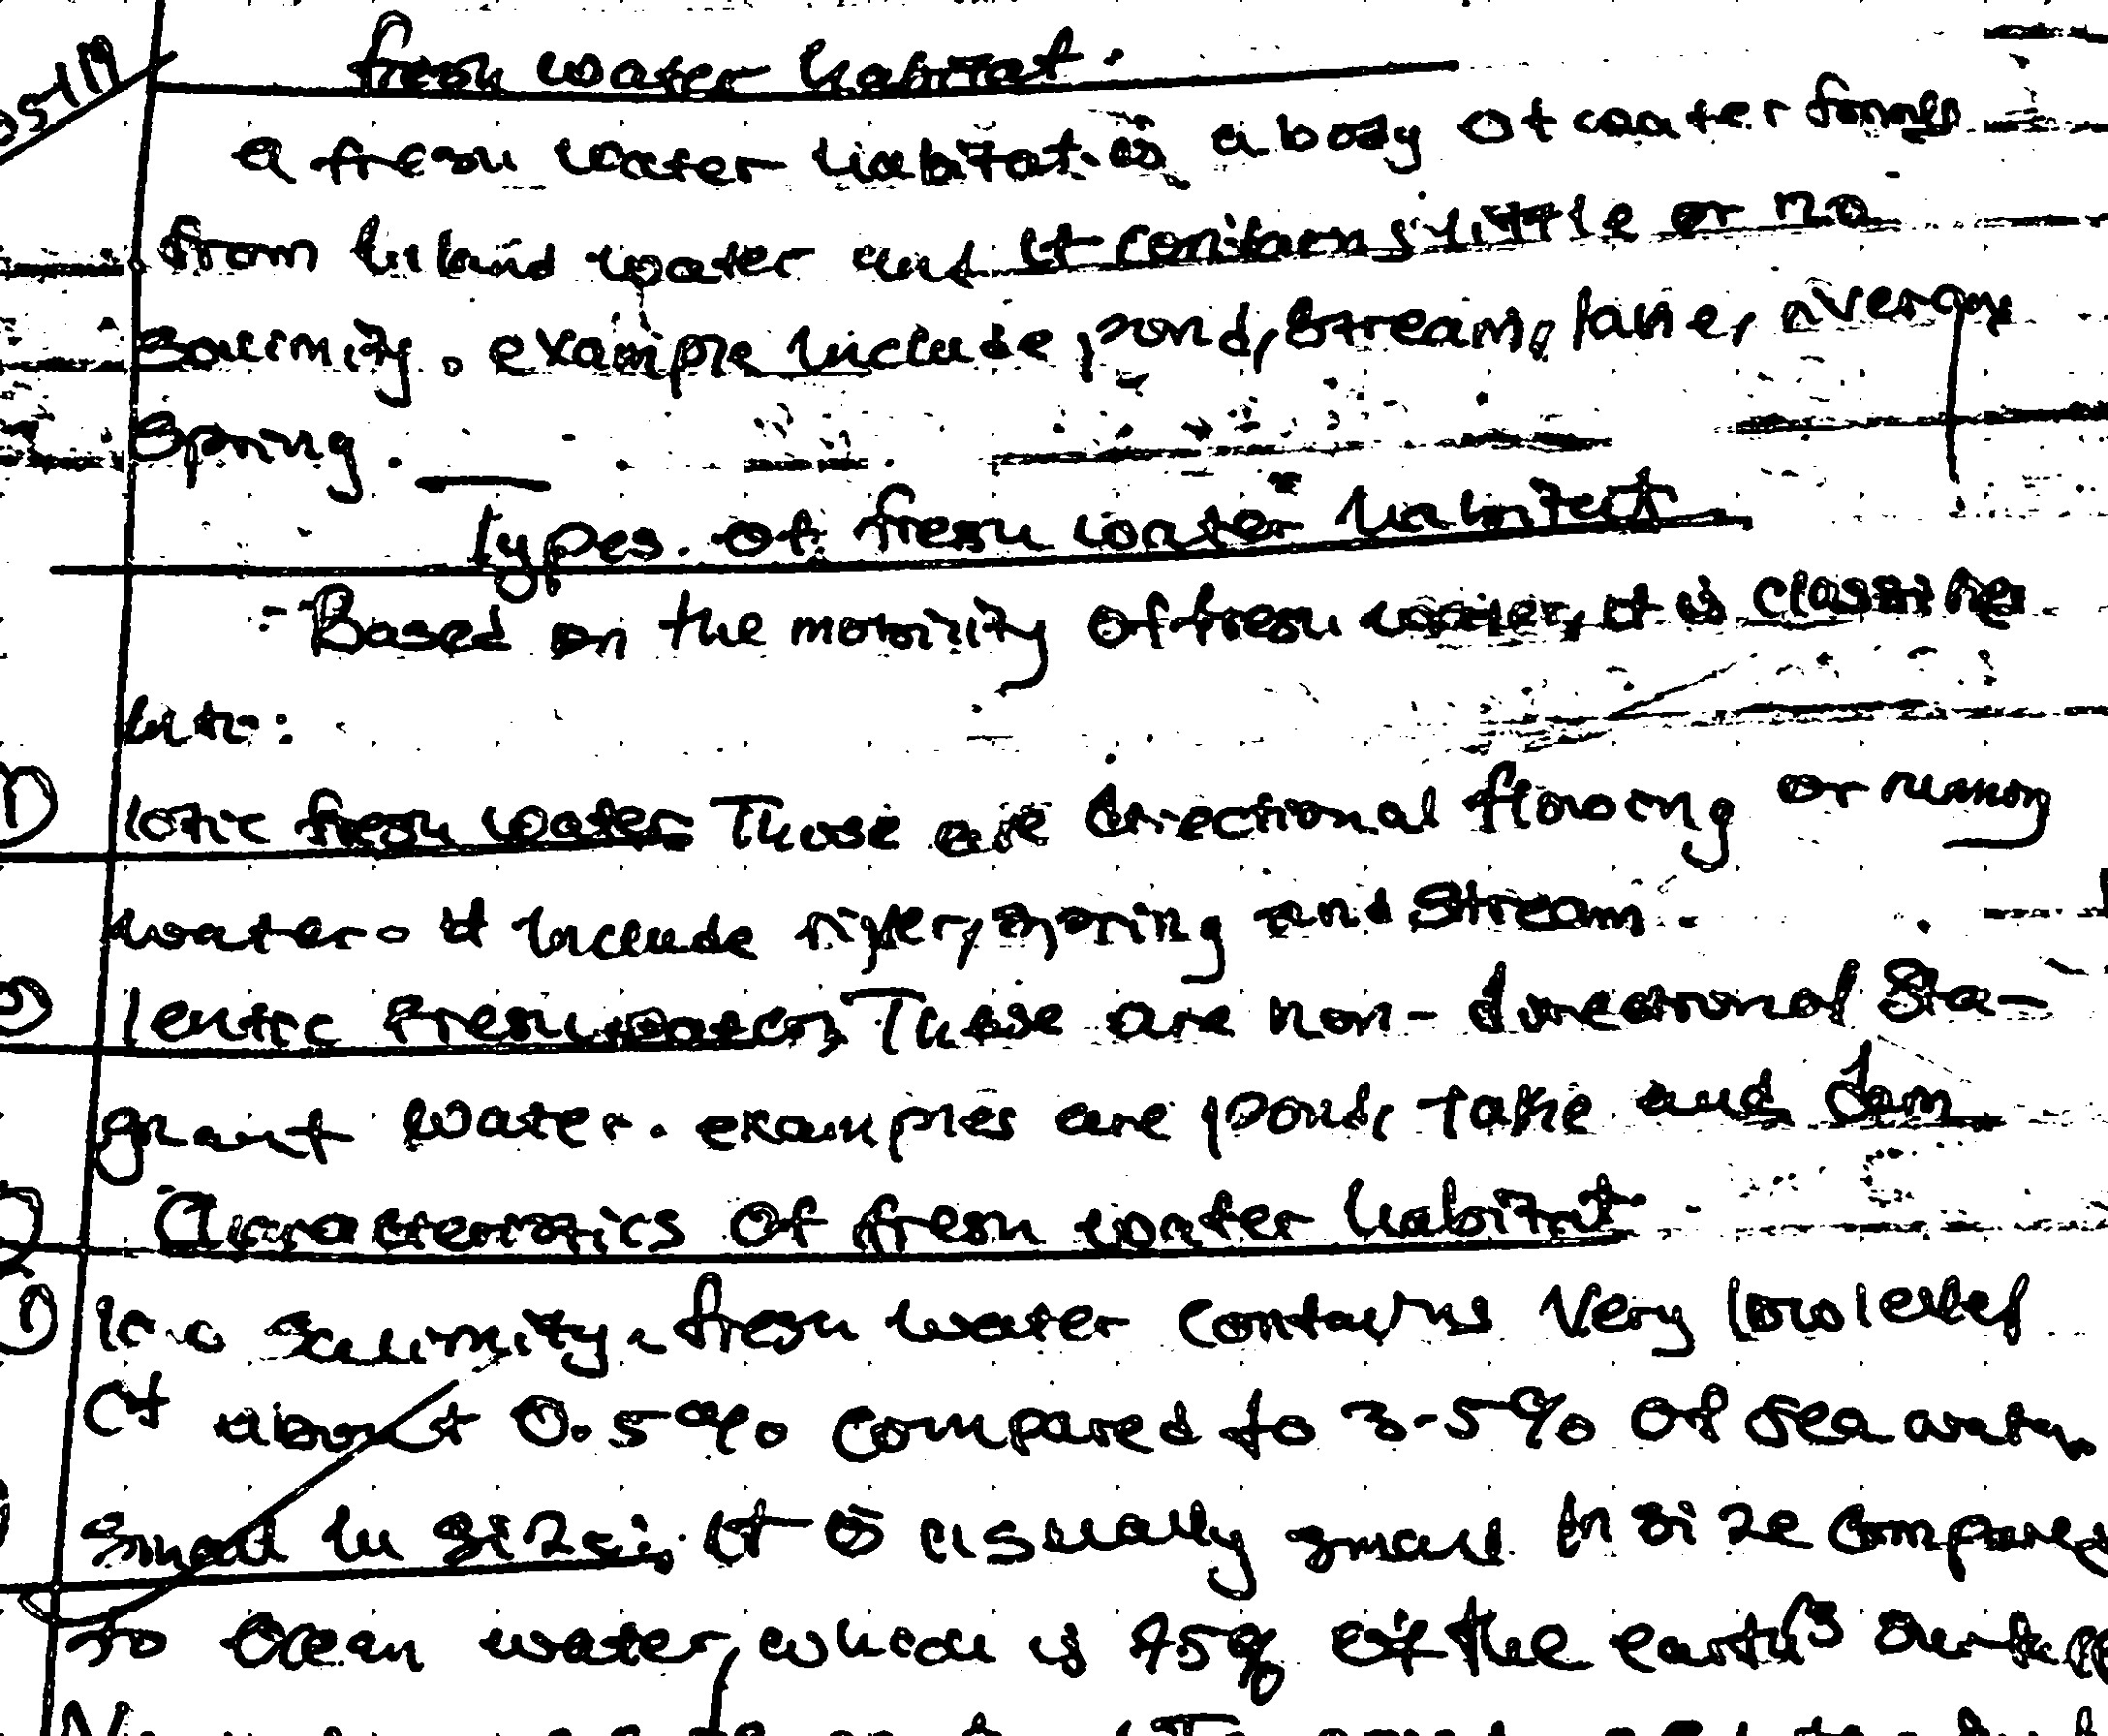 fresh water habitat.
a fresh water habitat is a body of water formed
from inland water and it contains little or no
Salinity. example include pond, Stream, lake, river or
Spring.
Types of fresh water habitat
Based on the mobility of fresh water, it is classified
into:
lotic fresh water Those are directional flowing or running
water. It include river, spring and Stream.
lentic fresh water These are non-directional Sta-
gnant water. examples are pond, lake and dam
Characteristics of fresh water habitat
low Salinity - fresh water contains very low level
of about 0.5% compared to 3-5% of sea water.
Small in size: it is usually small in size compared
to Ocean water, which is 75% of the earth's surface